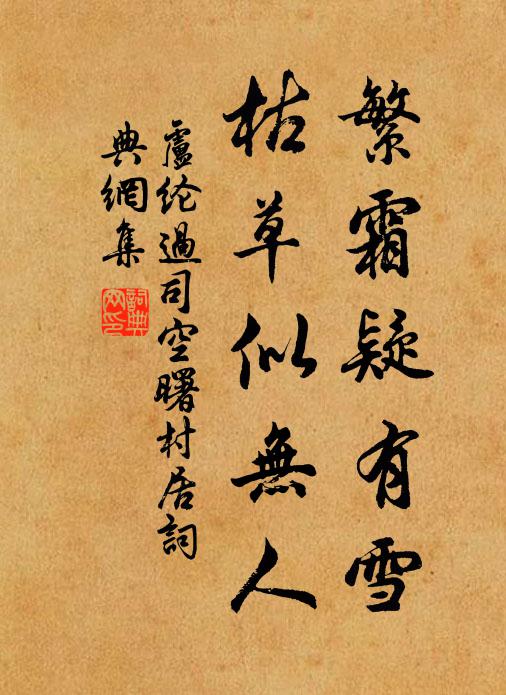 繁霜疑有雪
枯草似無人
盧纶過司空曙村居詞
典網集
詞典
网印